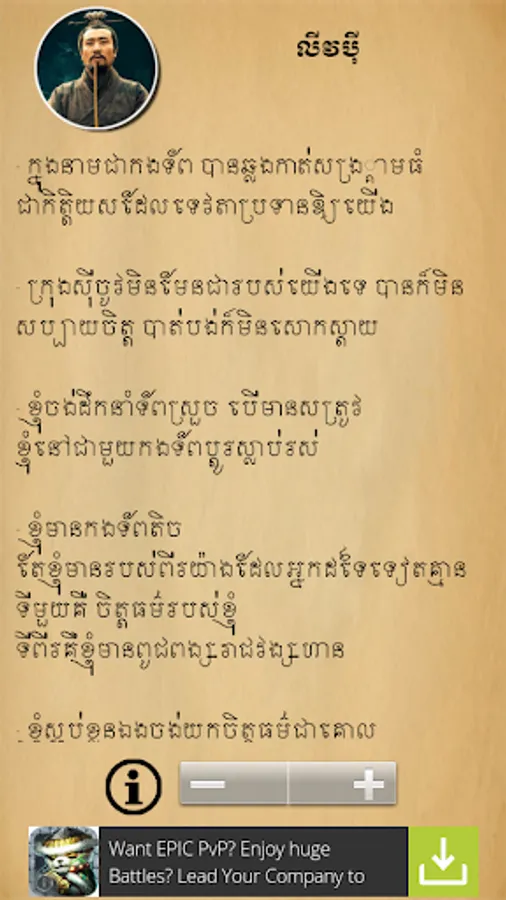 លីវប៉ី
- ក្នុងនាមជាកងទ័ព បានឆ្លងកាត់សង្រ្គាមធំ
ជាកិត្តិយសដែលទេវតាប្រទានឱ្យយើង
- ក្រុងស៊ីចូវមិនមែនជារបស់យើងទេ បានក៏មិន
សប្បាយចិត្ត បាត់បង់ក៏មិនសោកស្តាយ
- ខ្ញុំចង់ដឹកនាំទ័ពស្រួច បើមានសត្រូវ
ខ្ញុំនៅជាមួយកងទ័ពប្តូរស្លាប់រស់
- ខ្ញុំមានកងទ័ពតិច
តែខ្ញុំមានរបស់ពីរយ៉ាងដែលអ្នកដទៃទៀតគ្មាន
ទីមួយគឺ ចិត្តធម៌របស់ខ្ញុំ
ទីពីរគឺខ្ញុំមានពូជពង្សរាជវង្សហាន
- ខ្ញុំស្អប់ខ្លួនឯងចង់យកចិត្តធម៌ជាគោល
Want EPIC PvP? Enjoy huge
Battles? Lead Your Company to